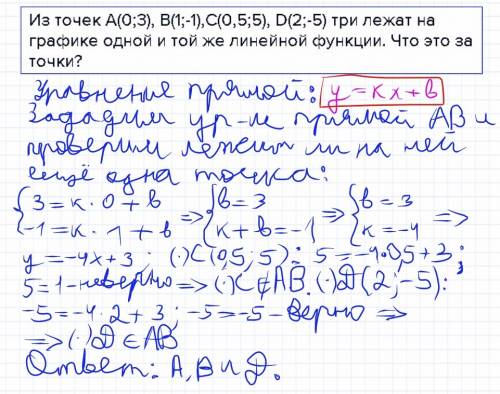 Из точек A(0;3), B(1;-1),C(0,5;5), D(2;-5) три лежат на
графике одной и той же линейной функции. Что это за
точки?
Уравнение прямой: y = kx + b
Зададим ур-ие прямой AB и
проверим лежит ли на ней
ещё одна точка:
{3 = k·0 + b {b = 3 {b = 3
{-1 = k·1 + b => {k + b = -1 => {k = -4 =>
y = -4x + 3; (·)C(0,5; 5): 5 = -4·0,5 + 3;
5 = 1 - неверно => (·)C ∉ AB. (·)D(2; -5):
-5 = -4·2 + 3; -5 = -5 - верно =>
=> (·)D ∈ AB
Ответ: A, B и D.